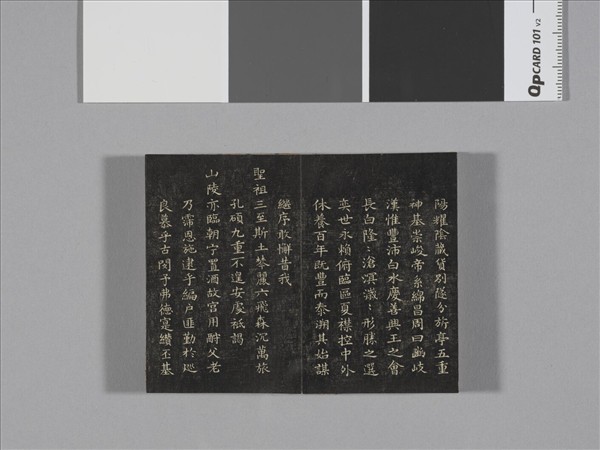 陽耀陰藏貨別隧分旂亭五重
神基崇峻帝系綿昌周曰豳岐
漢惟豐沛白水慶善興王之會
長白隆〻滄溟瀰〻形勝之選
奕世永賴俯臨區夏襟控中外
休養百年既豐而泰溯其始謀
繼序敢懈昔我
聖祖三至斯土琴麗六飛森沉萬旅
孔碩九重不遑安處祗謁
山陵亦臨朝宁置酒故宮用酧父老
乃霈恩施逮乎編戶匪勤於廵
良慕乎古閔予弗德寔纘丕基
QPCARD 101 v2